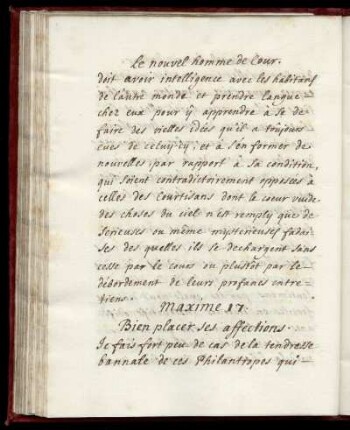 Le nouvel homme de Cour.
doit avoir intelligence avec les habitans
de l'autre monde et prendre langue
chez eux pour y apprendre à se de-
faire des vielles idées qu'il a toujours
eües de celuy-cy; et à s'en former de
nouvelles par rapport à sa condition,
qui soient contradictoirement opposées à
celles des Courtisans dont le coeur vuide
des choses du ciel n'est remply que de
serieuses ou même mysterieuses fadai-
ses des quelles ils se dechargent sans
cesse par le cours ou plustôt par le
débordement de leurs profanes entre-
tiens.
Maxime 17.
Bien placer ses affections.
Je fais fort peu de cas de la tendresse
bannale de ces Philantropes qui